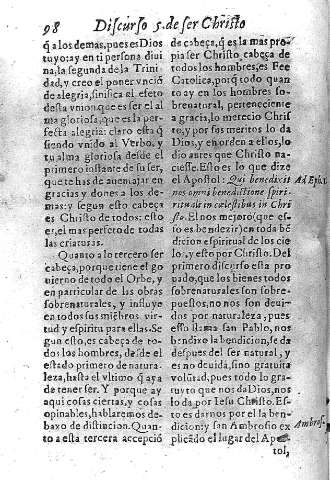 98 Discurso 5. de ser Christo
q̃ a los demas, pues es Dios
tuyo: ay en ti persona divi
na, la segunda de la Trini
dad, y creo el poner unciõ
de alegria, sinifica el efeto
desta vnion, que es ser el al
ma gloriosa, que es la per-
fecta alegria: claro esta q̃
siendo vnida al Verbo, y
tu alma gloriosa desde el
primero instante de su ser,
que te has de auentajar en
gracias y dones a los de-
mas: y segun esto cabeça
es Christo de todos: esto
es, el mas perfeto de todas
las criaturas.
Quanto a lo tercero ser
cabeça, porque tiene el go
uierno de todo el Orbe, y
en particular de las obras
sobrenaturales, y influye
en todos sus miẽbros vir-
tud y espiritu para ellas. Se
gun esto, es cabeça de to-
dos los hombres, desde el
estado primero de natura-
leza, hasta el vltimo q̃ aya
de tener ser. Y porque ay
aqui cosas ciertas, y cosas
opinables, hablaremos de-
baxo de distincion. Quan-
to a esta tercera accepció
de cabeça, q̃ es la mas pro-
pia ser Christo cabeça de
todos los hombres, es Fee
Catolica, porq̃ todo quan
to ay en los hombres so-
brenatural, perteneciente
a gracia, lo merecio Chris
to, y por sus meritos lo da
Dios, y en orden a ellos, lo
dio antes que Christo na-
ciesse. Esto es lo que dize
el Apostol: Qui benedixit
nos omni benedictione spiri-
tuali in cælestibus in Chri
sto. El nos mejorò (que es-
so es bendezir) en toda bẽ
dicion espiritual de los cie
lo, y esto por Christo. Del
primero discurso esta pro
uado, que los bienes todos
sobrenaturales son sobre-
puestos, no nos son deui-
dos por naturaleza, pues
esso llama san Pablo, nos
bendixo la bendicion, se da
despues del ser natural, y
es no deuida, sino gratuita
volũtad, pues todo lo gra-
tuyto que nos da Dios, nos
lo da por Iesu Christo. Es-
to es darnos por el la ben-
dicion: y san Ambrosio ex
plicado el lugar del Apos-
tol,
Ad Eph. 1.
Ambros.